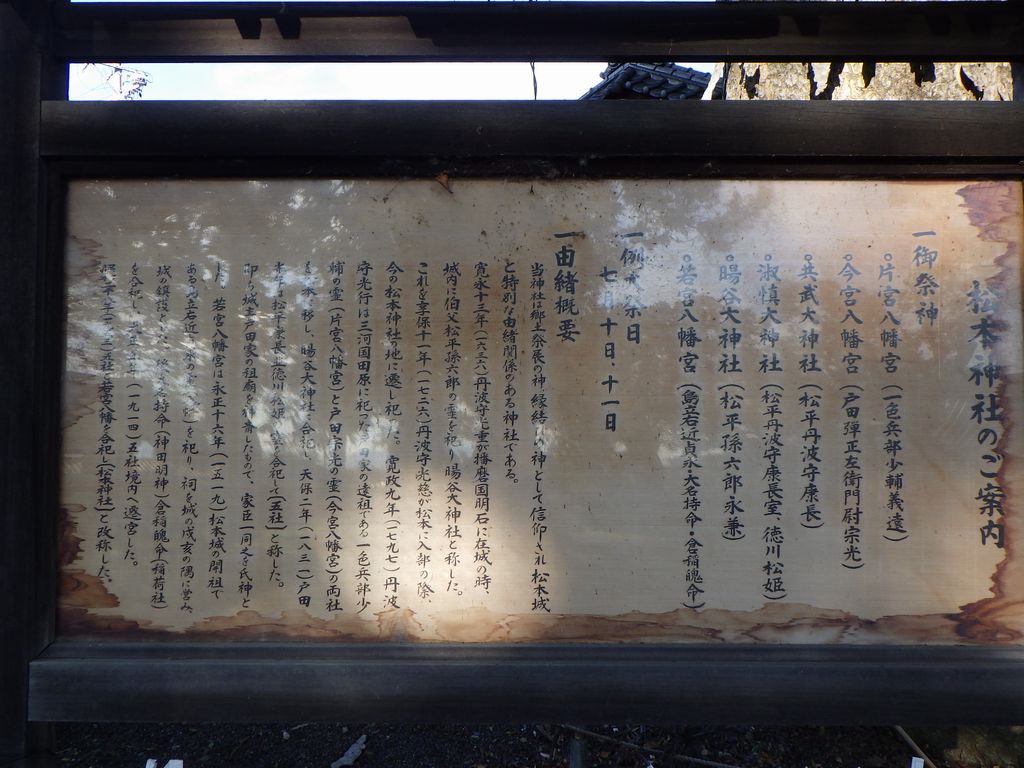 松本神社のご案内
一御祭神
○片宮八幡宮(一色兵部少輔義遠)
○今宮八幡宮(戸田弾正左衛門尉宗光)
○共武大神社(松平丹波守康長)
○淑慎大神社(松平丹波守康長室 徳川松姫)
○暘谷大神社(松平孫六郎永兼)
○若宮八幡宮(島立右近貞永・大名持命・倉稲魄命)
一例大祭日
七月十日、十一日
一由緒概要
当神社は郷土発展の神 縁結の神として信仰され松本城
と特別な由緒関係のある神社である。
寛永十三年(一六三六)丹波守光重が播磨国明石に在城の時、
城内に伯父松平孫六郎の霊を祀り暘谷大神社と称した。
これを享保十一年(一七二六)丹波守光慈が松本に入部の際、
今の松本神社地に遷し祀した。寛政九年(一七九七)丹波
守光行は三河国田原に祀った戸田家の遠祖である一色兵部少
輔の霊(片宮八幡宮)と戸田宗光の霊(今宮八幡宮)の両社
を松本に移し、暘谷大神社に合祀し、天保二年(一八三一)戸田
松平康長と徳川松姫の霊を合祀して(五社)と称した。
即ち城主戸田家の祖廟を のもので、家臣一同之を氏神と
した。若宮八幡宮は永正十六年(一五一九)松本城の開祖で
ある島立右近貞永の を祀り、祠を城の戌亥の隅に営み、
城の鎮護とした。 大名持命(神田明神)倉稲魄命(稲荷社)
を合祀し、 (一九一四)五社境内へ遷宮した。
昭和 五社に若宮八幡を合祀し(松本神社)と改称した。